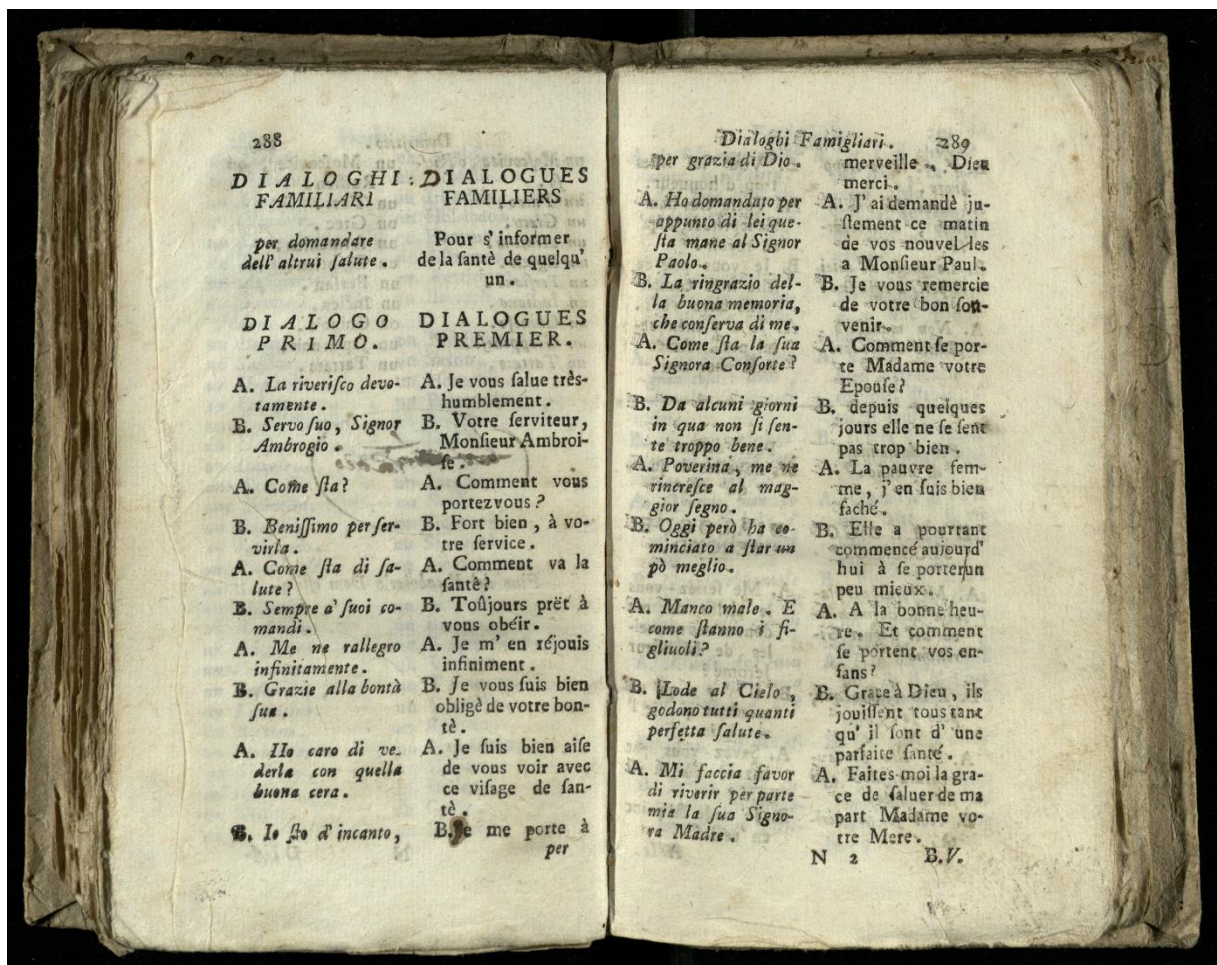 288
DIALOGHI
FAMILIARI
per domandare
dell' altrui ſalute.
DIALOGO
PRIMO.
A. La riveriſco devo-
tamente.
B. Servo ſuo, Signor
Ambrogio.
A. Come ſta?
B. Beniſſimo per ſer-
virla.
A. Come ſta di ſa-
lute?
B. Sempre a' ſuoi co-
mandi.
A. Me ne rallegro
infinitamente.
B. Grazie alla bontà
ſua.
A. Ho caro di ve-
derla con quella
buona cera.
B. Io ſto d' incanto,
DIALOGUES
FAMILIERS
Pour s' informer
de la ſantè de quelqu'
un.
DIALOGUES
PREMIER.
A. Je vous ſalue très-
humblement.
B. Votre ſerviteur,
Monſieur Ambroi-
ſe.
A. Comment vous
portezvous?
B. Fort bien, à vo-
tre ſervice.
A. Comment va la
ſantè?
B. Toûjours prët à
vous obéir.
A. Je m' en réjouis
infiniment.
B. Je vous ſuis bien
obligè de votre bon-
tè.
A. Je ſuis bien aiſe
de vous voir avec
ce viſage de ſan-
tè.
B. Je me porte à
per
Dialoghi Famigliari. 289
per grazia di Dio.
A. Ho domandato per
appunto di lei que-
ſta mane al Signor
Paolo.
B. La ringrazio del-
la buona memoria,
che conſerva di me.
A. Come ſta la ſua
Signora Conſorte?
B. Da alcuni giorni
in qua non ſi ſen-
te troppo bene.
A. Poverina, me ne
rincreſce al mag-
gior ſegno.
B. Oggi però ha co-
minciato a ſtar un
pò meglio.
A. Manco male. E
come ſtanno i fi-
gliuoli?
B. Lode al Cielo,
godono tutti quanti
perfetta ſalute.
A. Mi faccia favor
di riverir per parte
mia la ſua Signo-
ra Madre.
merveille, Dieu
merci.
A. J' ai demandè ju-
ſtement ce matin
de vos nouvelles
a Monſieur Paul.
B. Je vous remercie
de votre bon ſou-
venir.
A. Comment ſe por-
te Madame votre
Epouſe?
B. depuis quelques
jours elle ne ſe ſent
pas trop bien.
A. La pauvre fem-
me, j' en ſuis bien
faché.
B. Elle a pourtant
commencé aujourd'
hui à ſe porter un
peu mieux.
A. A la bonne heu-
re. Et comment
ſe portent vos en-
fans?
B. Grace à Dieu, ils
jouiſſent tous tant
qu' il ſont d' une
parfaite ſanté.
A. Faites-moi la gra-
ce de ſaluer de ma
part Madame vo-
tre Mere.
N 2 B.V.